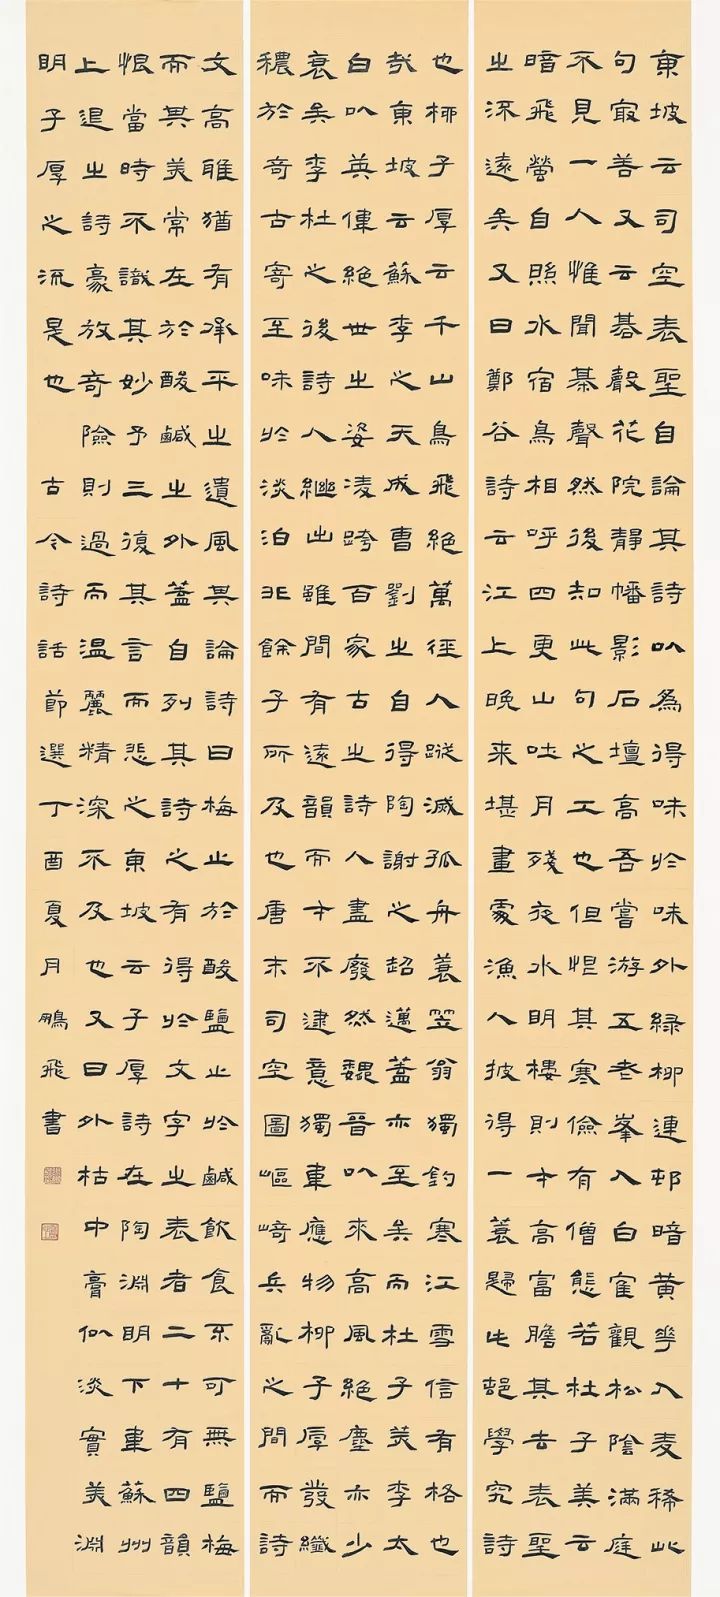 東坡云司空表聖自論其詩以爲得味於味外綠柳連邨暗黃華入麥稀此
句最善又云碁聲花院靜幡影石壇高吾嘗游五老峯入白隺觀松陰滿庭
不見一人惟聞棊聲然後知此句之工也但恨其寒儉有僧態若杜子美云
暗飛螢自照水宿鳥相呼四更山吐月殘夜水明樓則才高富贍其去表聖
之流遠矣又曰鄭谷詩云江上晚来堪畫處漁人披得一蓑歸此邨學究詩
也柳子厚云千山鳥飛絕萬徑人蹤滅孤舟蓑笠翁獨釣寒江雪信有格也
哉東坡云蘇李之天成曹劉之自得陶謝之超邁蓋亦至矣而杜子美李太
白以英偉絕世之姿凌跨百家古之詩人盡廢然魏晉以來高風絕塵亦少
衰矣李杜之後詩人繼出雖間有遠韻而才不逮意獨韋應物柳子厚發纖
穠於奇古寄至味於淡泊非餘子所及也唐末司空圖嶇崎兵亂之間而詩
文高雅猶有承平之遺風其論詩曰梅止於酸鹽止於鹹飲食不可無鹽梅
而其美常在於酸鹹之外蓋自列其詩之有得於文字之表者二十有四韻
恨當時不識其妙予三復其言而悲之東坡云子厚詩在陶淵明下韋蘇州
上退之詩豪放奇險則過而溫麗精深不及也又曰外枯中膏似淡實美淵
明子厚之流是也 古今詩話節選丁酉夏月鵬飛書